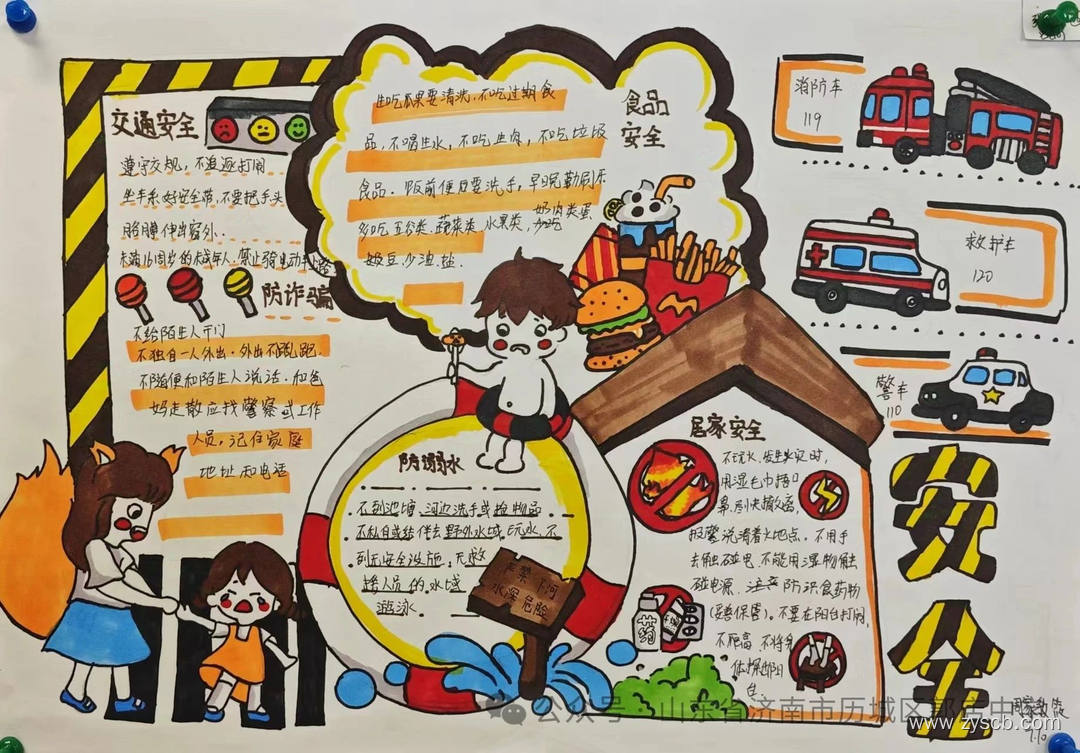 交通安全
遵守交规，不追逐打闹
坐车系好安全带，不要把手头
胳膊伸出窗外．
未满16周岁的未成年人，禁止骑电动车
防诈骗
不给陌生人开门
不独自一人外出．外出不乱跑．
不随便和陌生人说话．和爸
妈走散应找警察或工作
人员，记住家庭
地址和电话
生吃瓜果要清洗，不吃过期食
品，不喝生水，不吃生肉，不吃垃圾
食品．饭前便后要洗手，早晚勤刷牙
多吃五谷类．蔬菜类 水果类，奶肉类蛋
少油．盐．
食品
安全
消防车
119
救护车
120
警车
110
防溺水
不到池塘，河边洗手或捡物品
不私自或结伴去野外水域玩水，不
到无安全设施，无救
援人员的水域
游泳
严禁下河
水深危险
居家安全
不玩火．发生火灾时，
用湿毛巾捂口
鼻，尽快撤离，
报警说清着火地点．不用手
去触碰电．不能用湿物触
碰电源．注意防误食药物
(妥善保管)。不要在阳台打闹，
不爬高 不将身
体探出阳
台
药
安全
公众号 · 山东省济南市历城区郭店中
www.zyscb.com